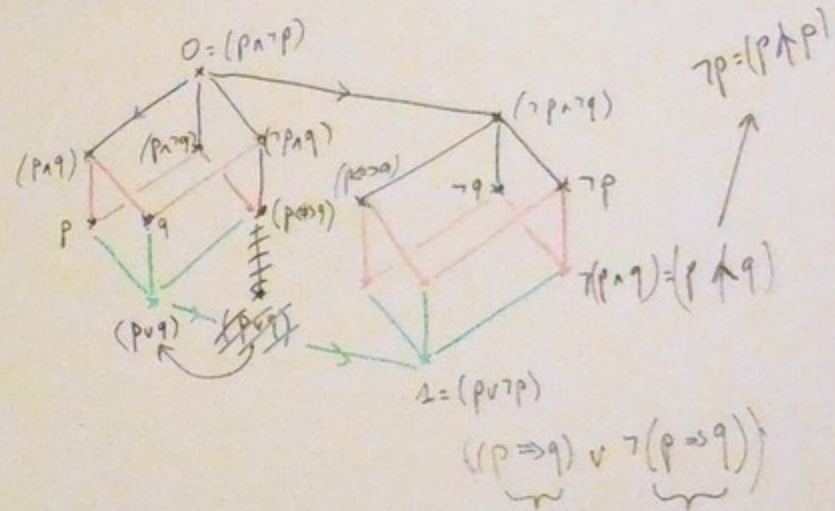 0=(p∧¬p)
¬p=(p↑p)
(¬p∧¬q)
(p∧q) (p∧¬q) (¬p∧q)
(p⇔q) ¬q ¬p
p q (p⇔q)
¬(p∧q)=(p↑q)
(p∨q) (p∨q)
1=(p∨¬p)
((p⇒q) ∨ ¬(p⇒q))